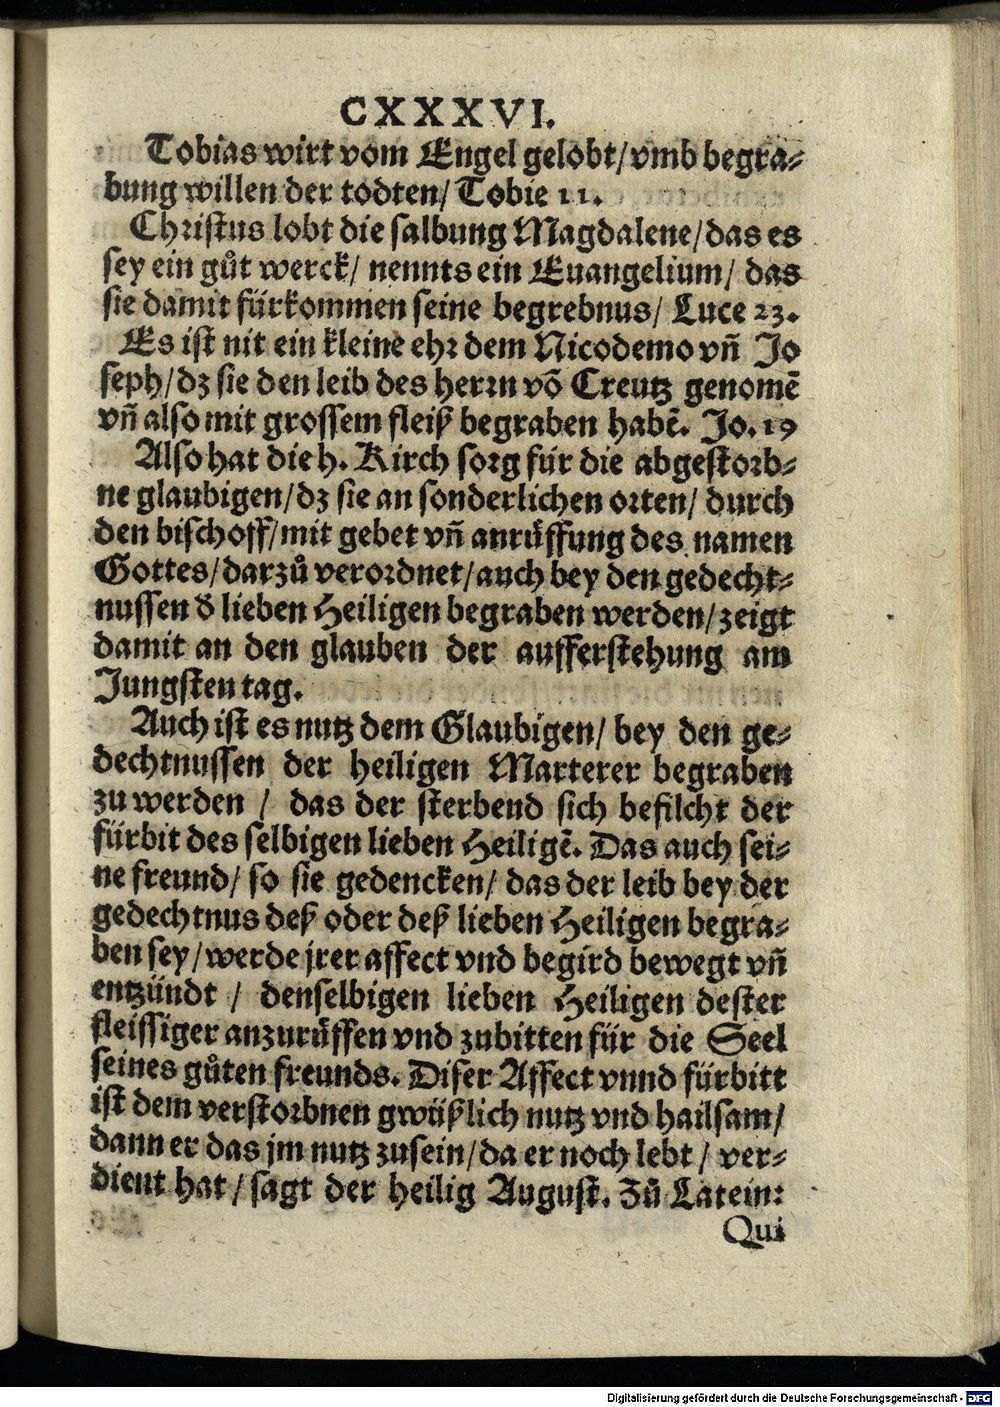 CXXXVI.
Tobias wirt vom Engel gelobt/vmb begra-
bung willen der todten/ Tobie 11.
Christus lobt die salbung Magdalene/das es
sey ein gůt werck/ nennts ein Euangelium/ das
sie damit fürkommen seine begrebnus/ Luce 23.
Es ist nit ein kleine ehr dem Nicodemo vñ Jo
seph/dz sie den leib des herrn võ Creutz genomẽ
vñ also mit grossem fleiß begraben habẽ. Jo. 19
Also hat die h. Kirch sorg für die abgestorb-
ne glaubigen/dz sie an sonderlichen orten/ durch
den bischoff/mit gebet vñ anrůffung des namen
Gottes/darzů verordnet/auch bey den gedecht-
nussen d lieben Heiligen begraben werden/zeigt
damit an den glauben der aufferstehung am
Jungsten tag.
Auch ist es nutz dem Glaubigen/ bey den ge-
dechtnussen der heiligen Marterer begraben
zu werden / das der sterbend sich befilcht der
fürbit des selbigen lieben Heiligẽ. Das auch sei-
ne freund/ so sie gedencken/ das der leib bey der
gedechtnus deß oder deß lieben Heiligen begra-
ben sey/werde jrer affect vnd begird bewegt vñ
entzündt / denselbigen lieben Heiligen dester
fleissiger anzurůffen vnd zubitten für die Seel
seines gůten freunds. Diser Affect vnnd fürbitt
ist dem verstorbnen gwüßlich nutz vnd hailsam/
dann er das jm nutz zusein/da er noch lebt / ver-
dient hat / sagt der heilig August. Zů Latein:
Qui
Digitalisierung gefördert durch die Deutsche Forschungsgemeinschaft - DFG